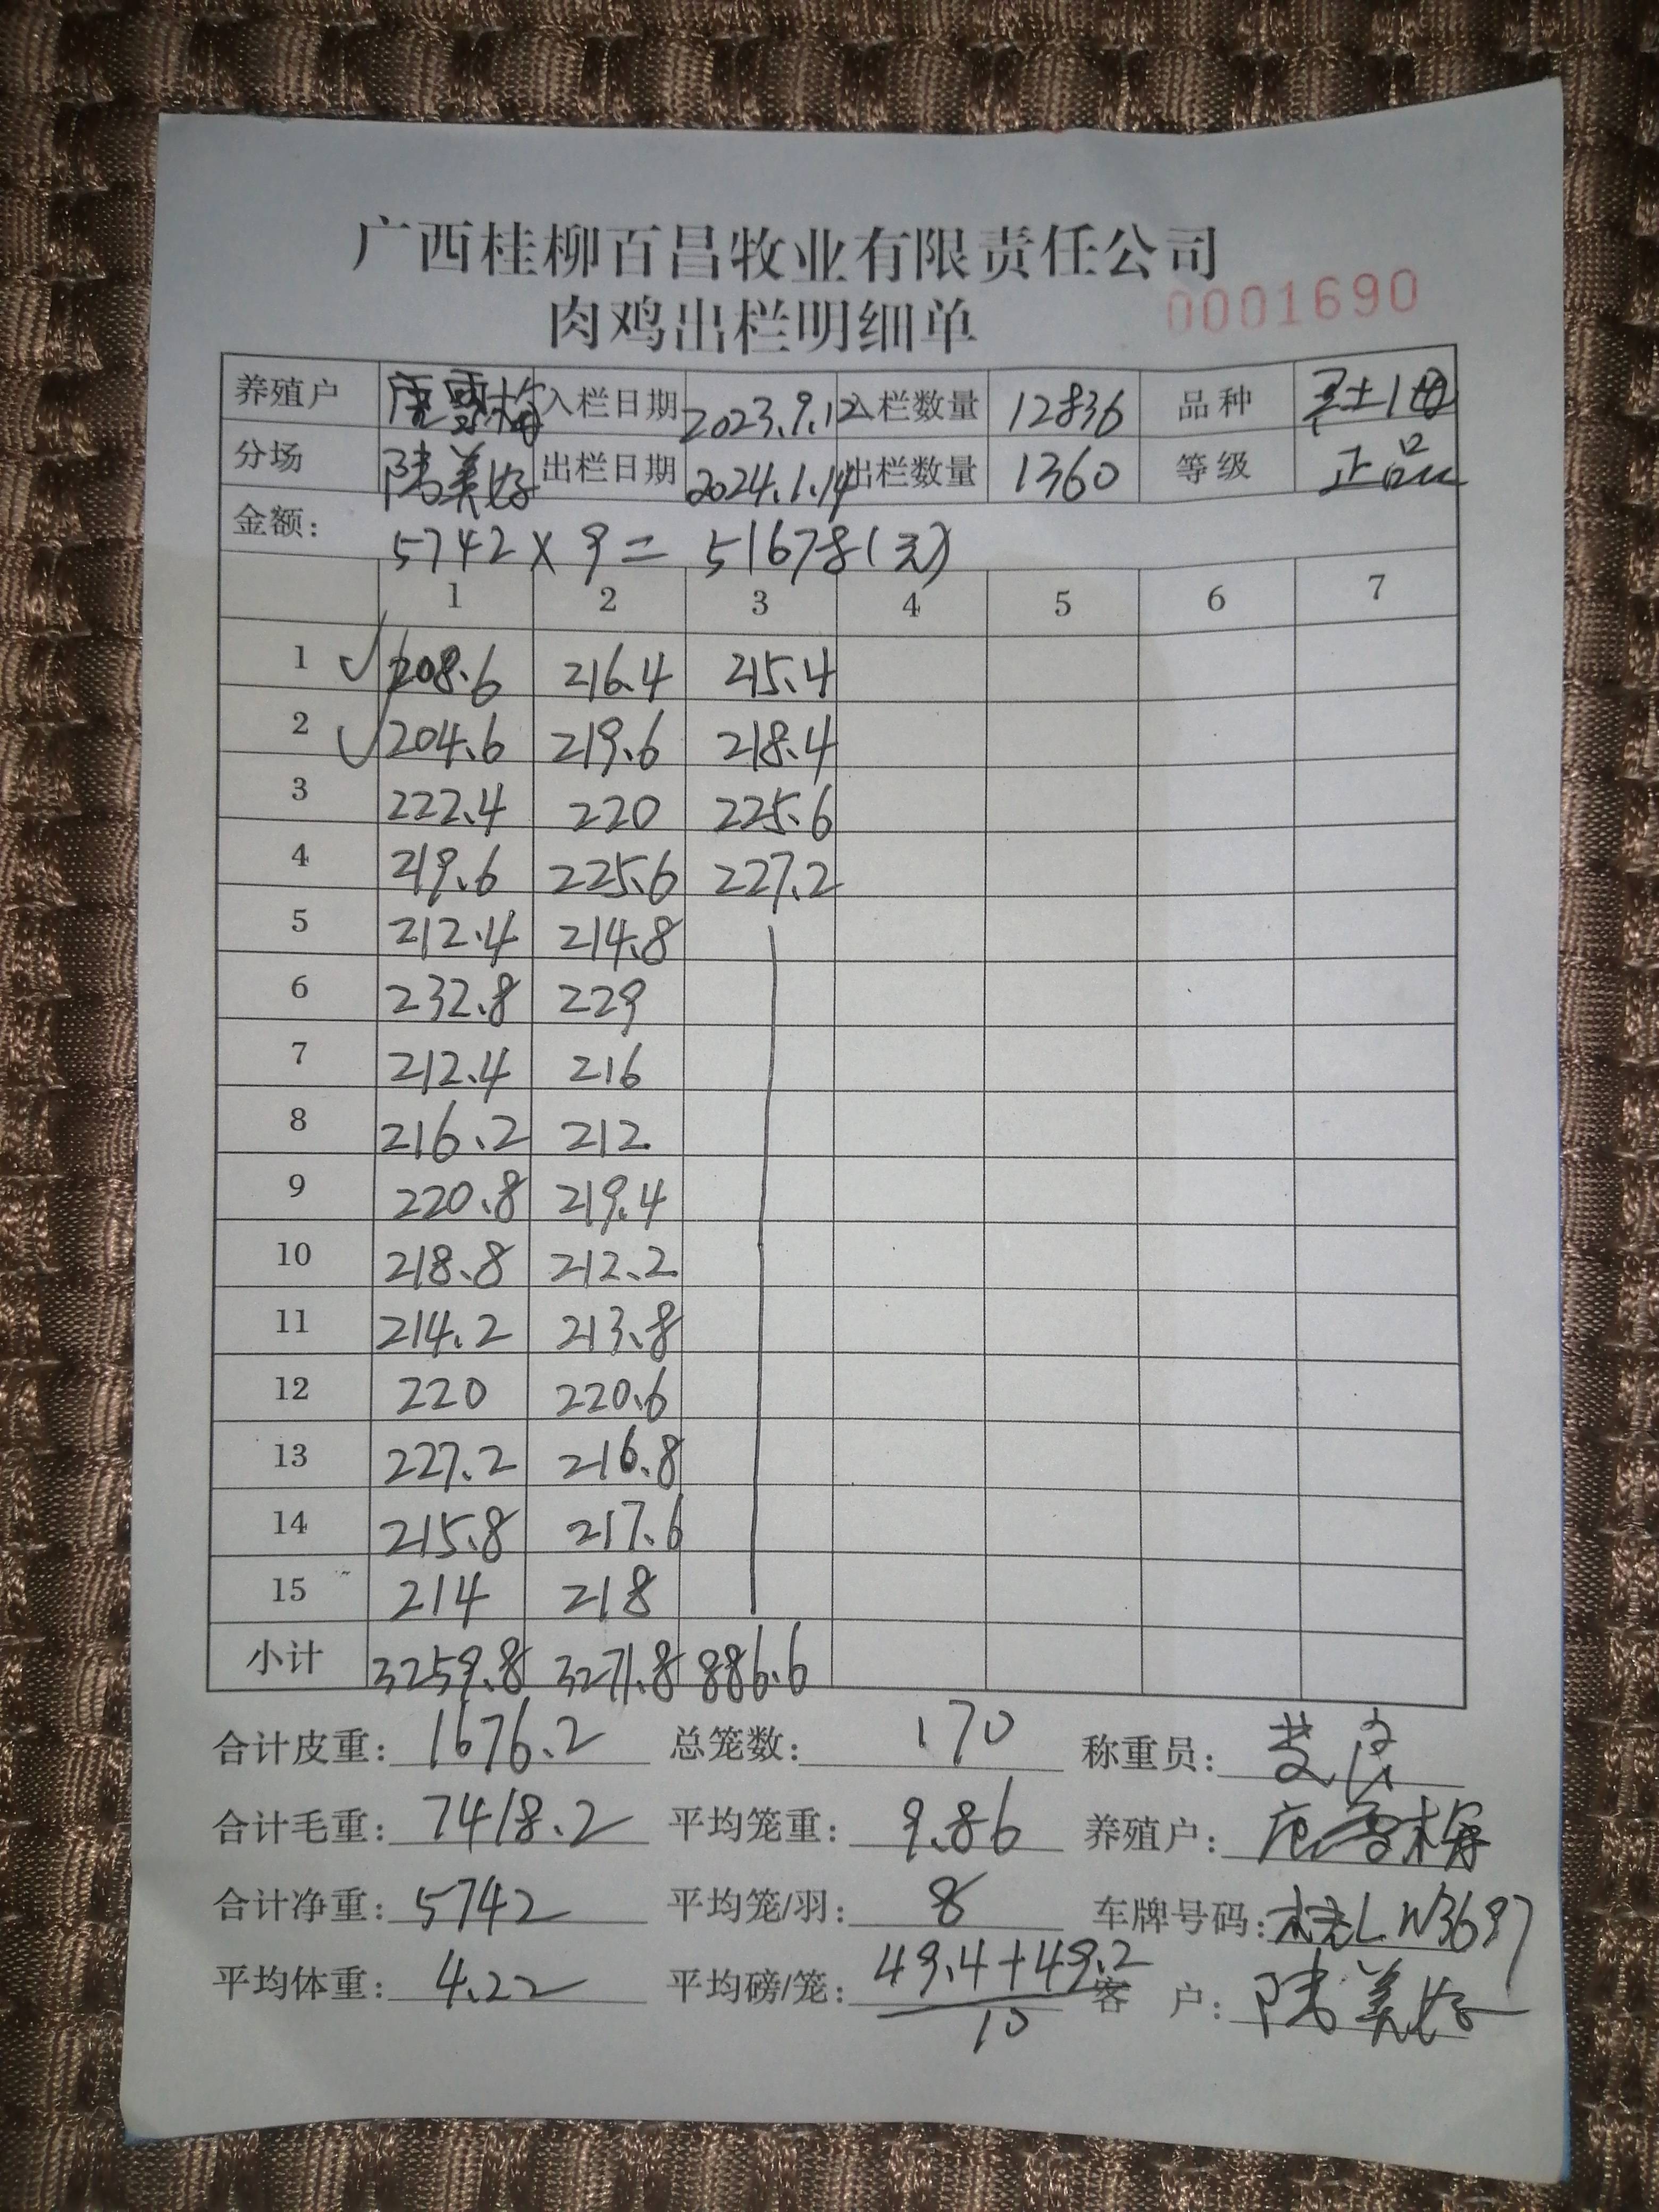 广西桂柳百昌牧业有限责任公司
肉鸡出栏明细单 0001690
养殖户 唐雪梅 入栏日期 2023.9.12 入栏数量 12836 品种 土1母
分场 陆美好 出栏日期 2024.1.14 出栏数量 1360 等级 正品
金额: 5742×9=51678(元)
1 2 3 4 5 6 7
1 208.6 216.4 215.4
2 204.6 219.6 218.4
3 222.4 220 225.6
4 219.6 225.6 227.2
5 212.4 214.8
6 232.8 229
7 212.4 216
8 216.2 212
9 220.8 219.4
10 218.8 212.2
11 214.2 213.8
12 220 220.6
13 227.2 216.8
14 215.8 217.6
15 214 218
小计 3259.8 3271.8 886.6
合计皮重: 1676.2 总笼数: 170 称重员:
合计毛重: 7418.2 平均笼重: 9.86 养殖户: 唐雪梅
合计净重: 5742 平均笼/羽: 8 车牌号码: 桂LW3697
平均体重: 4.22 平均磅/笼: 49.4+49.2 客户: 陆美好
10